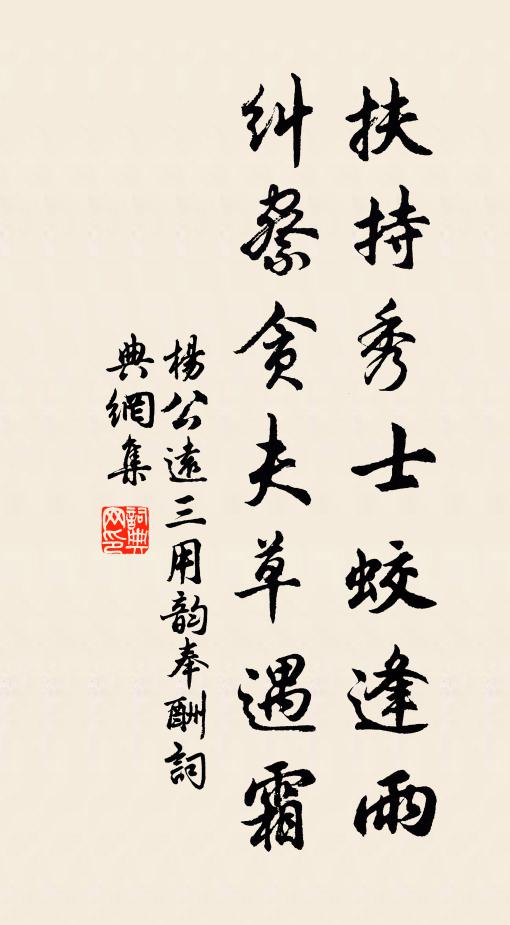 扶持秀士蛟逢雨
糾察貪夫草遇霜
楊公遠三用韵奉酬詞
典網集
詞典網印